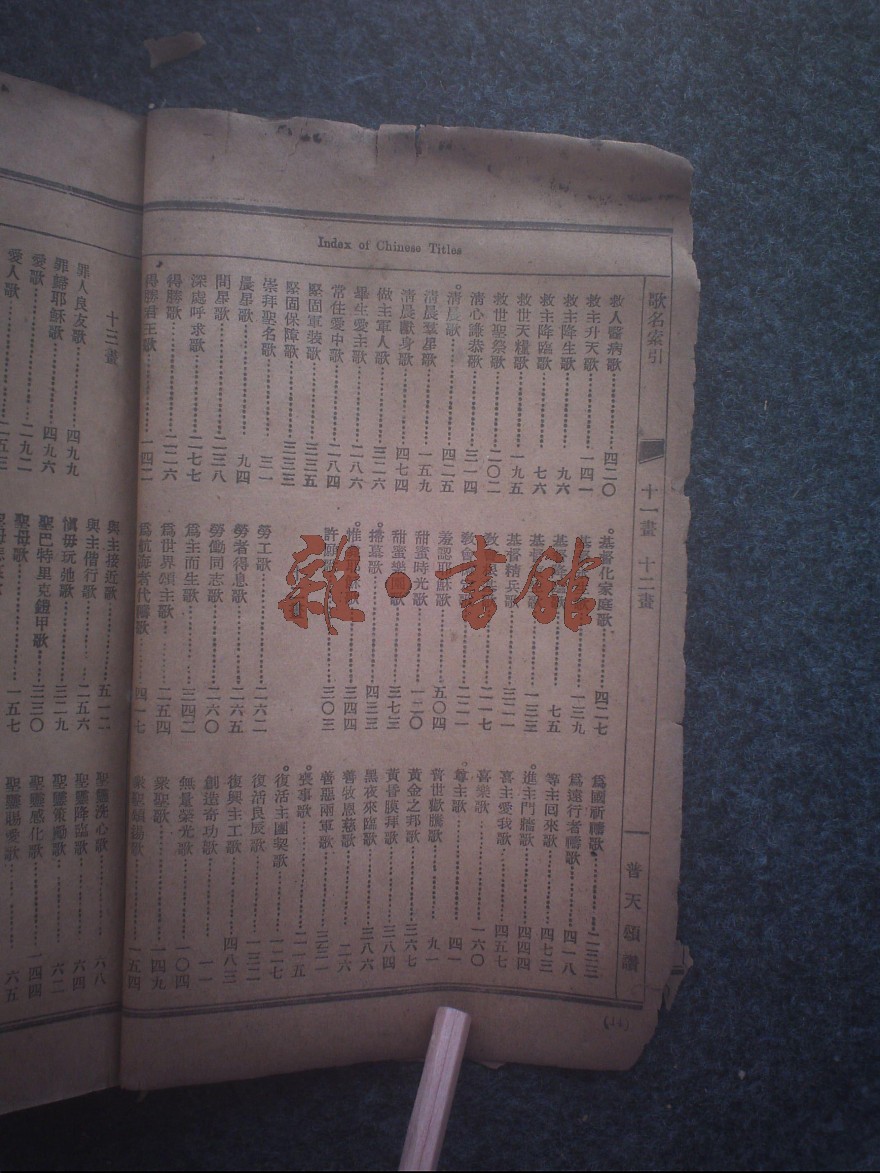 Index of Chinese Titles
歌名索引
十一畫 十二畫
普天頌讚
救人醫病歌 四二〇
救主升天歌 一四一
救主降生歌 九六
救主降臨歌 七六
救世天糧歌 一九五
救世聖祭歌 二〇二
清心謙恭歌 三一四
清晨歌 四二五
清晨彗星歌 一五九
清晨獻身歌 四七四
做主軍人歌 三二六
畢生愛主歌 二八六
常住愛中歌 二八四
堅固軍裝歌 三三五
堅固保障歌 三三三
崇拜聖名歌 三一
晨星歌 九四
問星歌 二三八
深處呼求歌 二七七
得勝歌 二二六
得勝君王歌 一四二
基督化家庭歌 四二七
一三九
一三三
基督精兵歌 三二一
二一七
二二一
羞認耶穌歌 五〇四
甜蜜時光歌 一二〇
三七三
播慕歌 四三三
三四四
三〇三
勞工歌 二六二
勞者得息歌 二六五
勞働同志歌 二六〇
爲主而生歌 三四二
爲世界領主歌 二五四
爲航海者代禱歌 四一七
爲國祈禱歌 一三三
爲遠行者禱歌 四一八
等主回來歌 四七三
進主門牆歌 四四四
喜主愛我歌 四五七
喜樂歌 一六〇
尊主歌 四一
普世歡騰歌 九一
黃金之邦歌 三六七
黃昏膜拜歌 三八四
黑夜來臨歌 三八六
善牧恩慈歌 二六
善惡兩軍歌 三三一
喪事歌 二一五
復活主團契歌 一二七
復活良辰歌 一三二
復興主工歌 四八三
創造奇功歌 一一
無量榮光歌 一〇四
衆聖歌 一四九
衆聖頌錫歌 一五四
十三畫
罪人良友歌 四九九
罪諸耶穌歌 四九六
愛歌 二九二
愛人歌 二五三
與主接近歌 五一二
與主偕行歌 二五六
愼毋玩忽歌 三二九
聖巴特里克鎧甲歌 三三〇
聖母歌 一五七
聖靈洗心歌 六八
聖靈降臨歌 六四
聖靈策勵歌 六二
聖靈感化歌 一四四
聖靈賜愛歌 六五
雜·書館